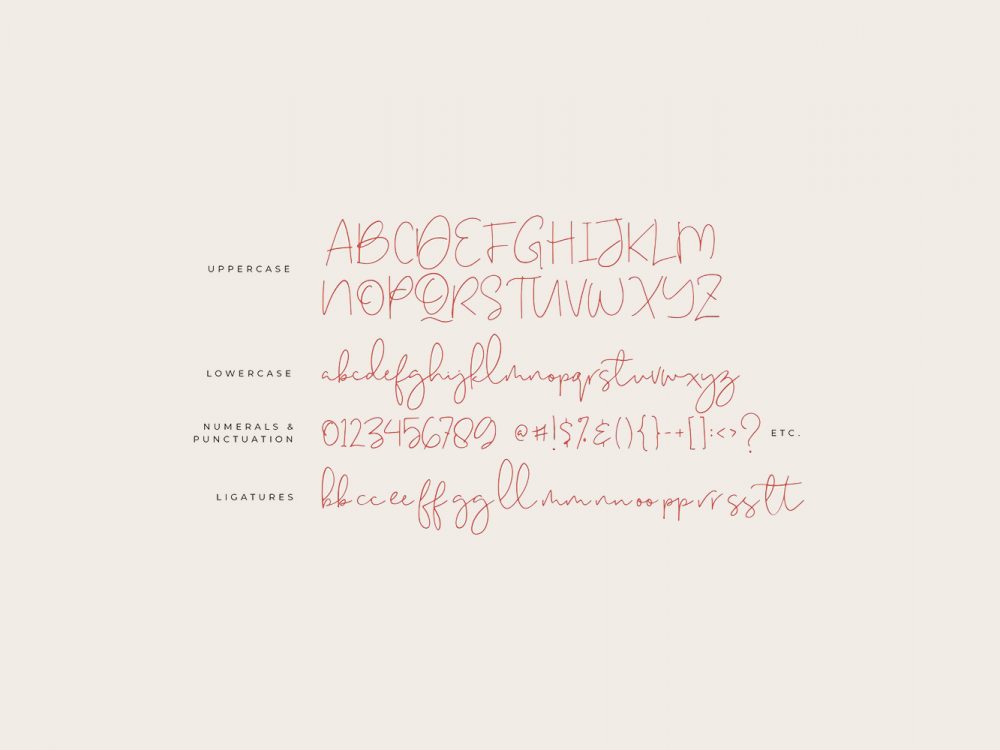 UPPERCASE
ABCDEFGHIJKLM
NOPQRSTUVWXYZ
LOWERCASE
abcdefghijklmnopqrstuvwxyz
NUMERALS &
PUNCTUATION
0123456789 @#!$%&(){}-+[]:<>? ETC.
LIGATURES
bbcceeffggllmmnnoopprrsstt